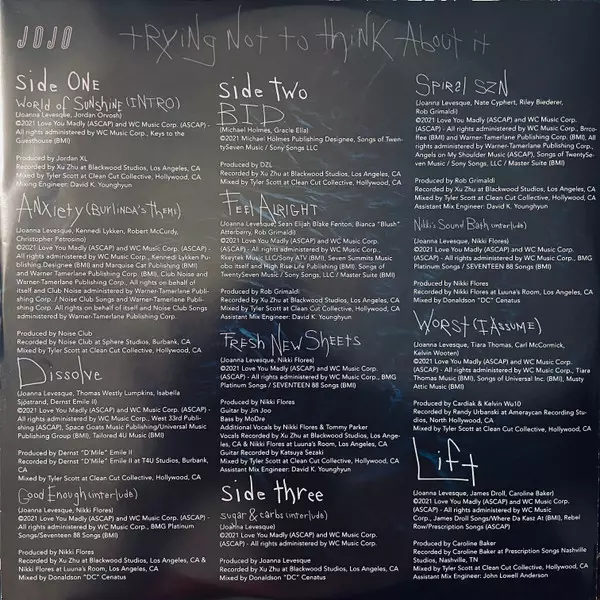 JOJO
trying Not to think About it
Side ONE
World of Sunshine (INTRO)
(Joanna Levesque, Jordan Orvosh)
©2021 Love You Madly (ASCAP) and WC Music Corp. (ASCAP) -
All rights administered by WC Music Corp., Keys to the
Guesthouse (BMI)
Produced by Jordan XL
Recorded by Xu Zhu at Blackwood Studios, Los Angeles, CA
Mixed by Tyler Scott at Clean Cut Collective, Hollywood, CA
Mixing Engineer: David K. Younghyun
Anxiety (Burlinda's Theme)
(Joanna Levesque, Kennedi Lykken, Robert McCurdy,
Christopher Petrosino)
©2021 Love You Madly (ASCAP) and WC Music Corp. (ASCAP) -
All rights administered by WC Music Corp., Kennedi Lykken Pu-
blishing Designee (BMI) and Marquise Cat Publishing (BMI)
and Warner-Tamerlane Publishing Corp. (BMI), Club Noise and
Warner-Tamerlane Publishing Corp. All rights on behalf of
itself and Club Noise administered by Warner-Tamerlane Publi-
shing Corp. / Noise Club Songs and Warner-Tamerlane Publi-
shing Corp. All rights on behalf of itself and Noise Club Songs
administered by Warner-Tamerlane Publishing Corp.
Produced by Noise Club
Recorded by Noise Club at Sphere Studios, Burbank, CA
Mixed by Tyler Scott at Clean Cut Collective, Hollywood, CA
Dissolve
(Joanna Levesque, Thomas Westly Lumpkins, Isabella
Sjöstrand, Dernst Emile II)
©2021 Love You Madly (ASCAP) and WC Music Corp. (ASCAP) -
All rights administered by WC Music Corp., West 33rd Publi-
shing (ASCAP), Space Goats Music Publishing/Universal Music
Publishing Group (BMI), Tailored 4U Music (BMI)
Produced by Dernst "D'Mile" Emile II
Recorded by Dernst "D'Mile" Emile II at T4U Studios, Burbank,
CA
Mixed by Tyler Scott at Clean Cut Collective, Hollywood, CA
Good Enough (interlude)
(Joanna Levesque, Nikki Flores)
©2021 Love You Madly (ASCAP) and WC Music Corp. (ASCAP) -
All rights administered by WC Music Corp., BMG Platinum
Songs/Seventeen 88 Songs (BMI)
Produced by Nikki Flores
Recorded by Xu Zhu at Blackwood Studios, Los Angeles, CA &
Nikki Flores at Luuna's Room, Los Angeles, CA
Mixed by Donaldson "DC" Cenatus
Side Two
B.I.D
(Michael Holmes, Gracie Ella)
©2021 Michael Holmes Publishing Designee, Songs of Twen-
tySeven Music / Sony Songs LLC
Produced by DZL
Recorded by Xu Zhu at Blackwood Studios, Los Angeles, CA
Mixed by Tyler Scott at Clean Cut Collective, Hollywood, CA
Feel Alright
(Joanna Levesque, Sean Elijah Blake Fenton, Bianca "Blush"
Atterberry, Rob Grimaldi)
©2021 Love You Madly (ASCAP) and WC Music Corp.
(ASCAP) - All rights administered by WC Music Corp.,
Rkeytek Music LLC/Sony ATV (BMI), Seven Summits Music
obo itself and High Rise Life Publishing (BMI), Songs of
TwentySeven Music / Sony Songs, LLC / Master Suite (BMI)
Produced by Rob Grimaldi
Recorded by Xu Zhu at Blackwood Studios, Los Angeles, CA
Mixed by Tyler Scott at Clean Cut Collective, Hollywood, CA
Assistant Mix Engineer: David K. Younghyun
Fresh New Sheets
(Joanna Levesque, Nikki Flores)
©2021 Love You Madly (ASCAP) and WC Music Corp.
(ASCAP) - All rights administered by WC Music Corp., BMG
Platinum Songs / SEVENTEEN 88 Songs (BMI)
Produced by Nikki Flores
Guitar by Jin Joo
Bass by MoDre
Additional Vocals by Nikki Flores & Tommy Parker
Vocals Recorded by Xu Zhu at Blackwood Studios, Los Ange-
les, CA & Nikki Flores at Luuna's Room, Los Angeles, CA
Guitar Recorded by Katsuya Sezaki
Mixed by Tyler Scott at Clean Cut Collective, Hollywood, CA
Assistant Mix Engineer: David K. Younghyun
Side three
sugar & carbs (interlude)
(Joanna Levesque)
©2021 Love You Madly (ASCAP) and WC Music Corp.
(ASCAP) - All rights administered by WC Music Corp.
Produced by Joanna Levesque
Recorded by Xu Zhu at Blackwood Studios, Los Angeles, CA
Mixed by Donaldson "DC" Cenatus
Spiral SZN
(Joanna Levesque, Nate Cyphert, Riley Biederer,
Rob Grimaldi)
©2021 Love You Madly (ASCAP) and WC Music Corp.
(ASCAP) - All rights administered by WC Music Corp.,
ree (BMI) and Warner-Tamerlane Publishing Corp. (BMI), All
rights administered by Warner-Tamerlane Publishing Corp.,
Angels on My Shoulder Music (ASCAP), Songs of TwentySe-
ven Music / Sony Songs, LLC / Master Suite (BMI)
Produced by Rob Grimaldi
Recorded by Xu Zhu at Blackwood Studios, Los Angeles, CA
Mixed by Tyler Scott at Clean Cut Collective, Hollywood, CA
Assistant Mix Engineer: David K. Younghyun
Nikki's Sound Bath (interlude)
(Joanna Levesque, Nikki Flores)
©2021 Love You Madly (ASCAP) and WC Music Corp.
(ASCAP) - All rights administered by WC Music Corp., BMG
Platinum Songs / SEVENTEEN 88 Songs (BMI)
Produced by Nikki Flores
Recorded by Nikki Flores at Luuna's Room, Los Angeles, CA
Mixed by Donaldson "DC" Cenatus
Worst (I Assume)
(Joanna Levesque, Tiara Thomas, Carl McCormick,
Kelvin Wooten)
©2021 Love You Madly (ASCAP) and WC Music Corp.
(ASCAP) - All rights administered by WC Music Corp., Tiara
Thomas Music (BMI), Songs of Universal Inc. (BMI), Musty
Attic Music (BMI)
Produced by Cardiak & Kelvin Wu10
Recorded by Randy Urbanski at Ameraycan Recording Stu-
dios, North Hollywood, CA
Mixed by Tyler Scott at Clean Cut Collective, Hollywood, CA
Lift
(Joanna Levesque, James Droll, Caroline Baker)
©2021 Love You Madly (ASCAP) and WC Music Corp.
(ASCAP) - All rights administered by WC Music
Corp., James Droll Songs/Where Da Kasz At (BMI), Rebel
Row/Prescription Songs (ASCAP)
Produced by Caroline Baker
Recorded by Caroline Baker at Prescription Songs Nashville
Studios, Nashville, TN
Mixed by Tyler Scott at Clean Cut Collective, Hollywood, CA
Assistant Mix Engineer: John Lowell Anderson